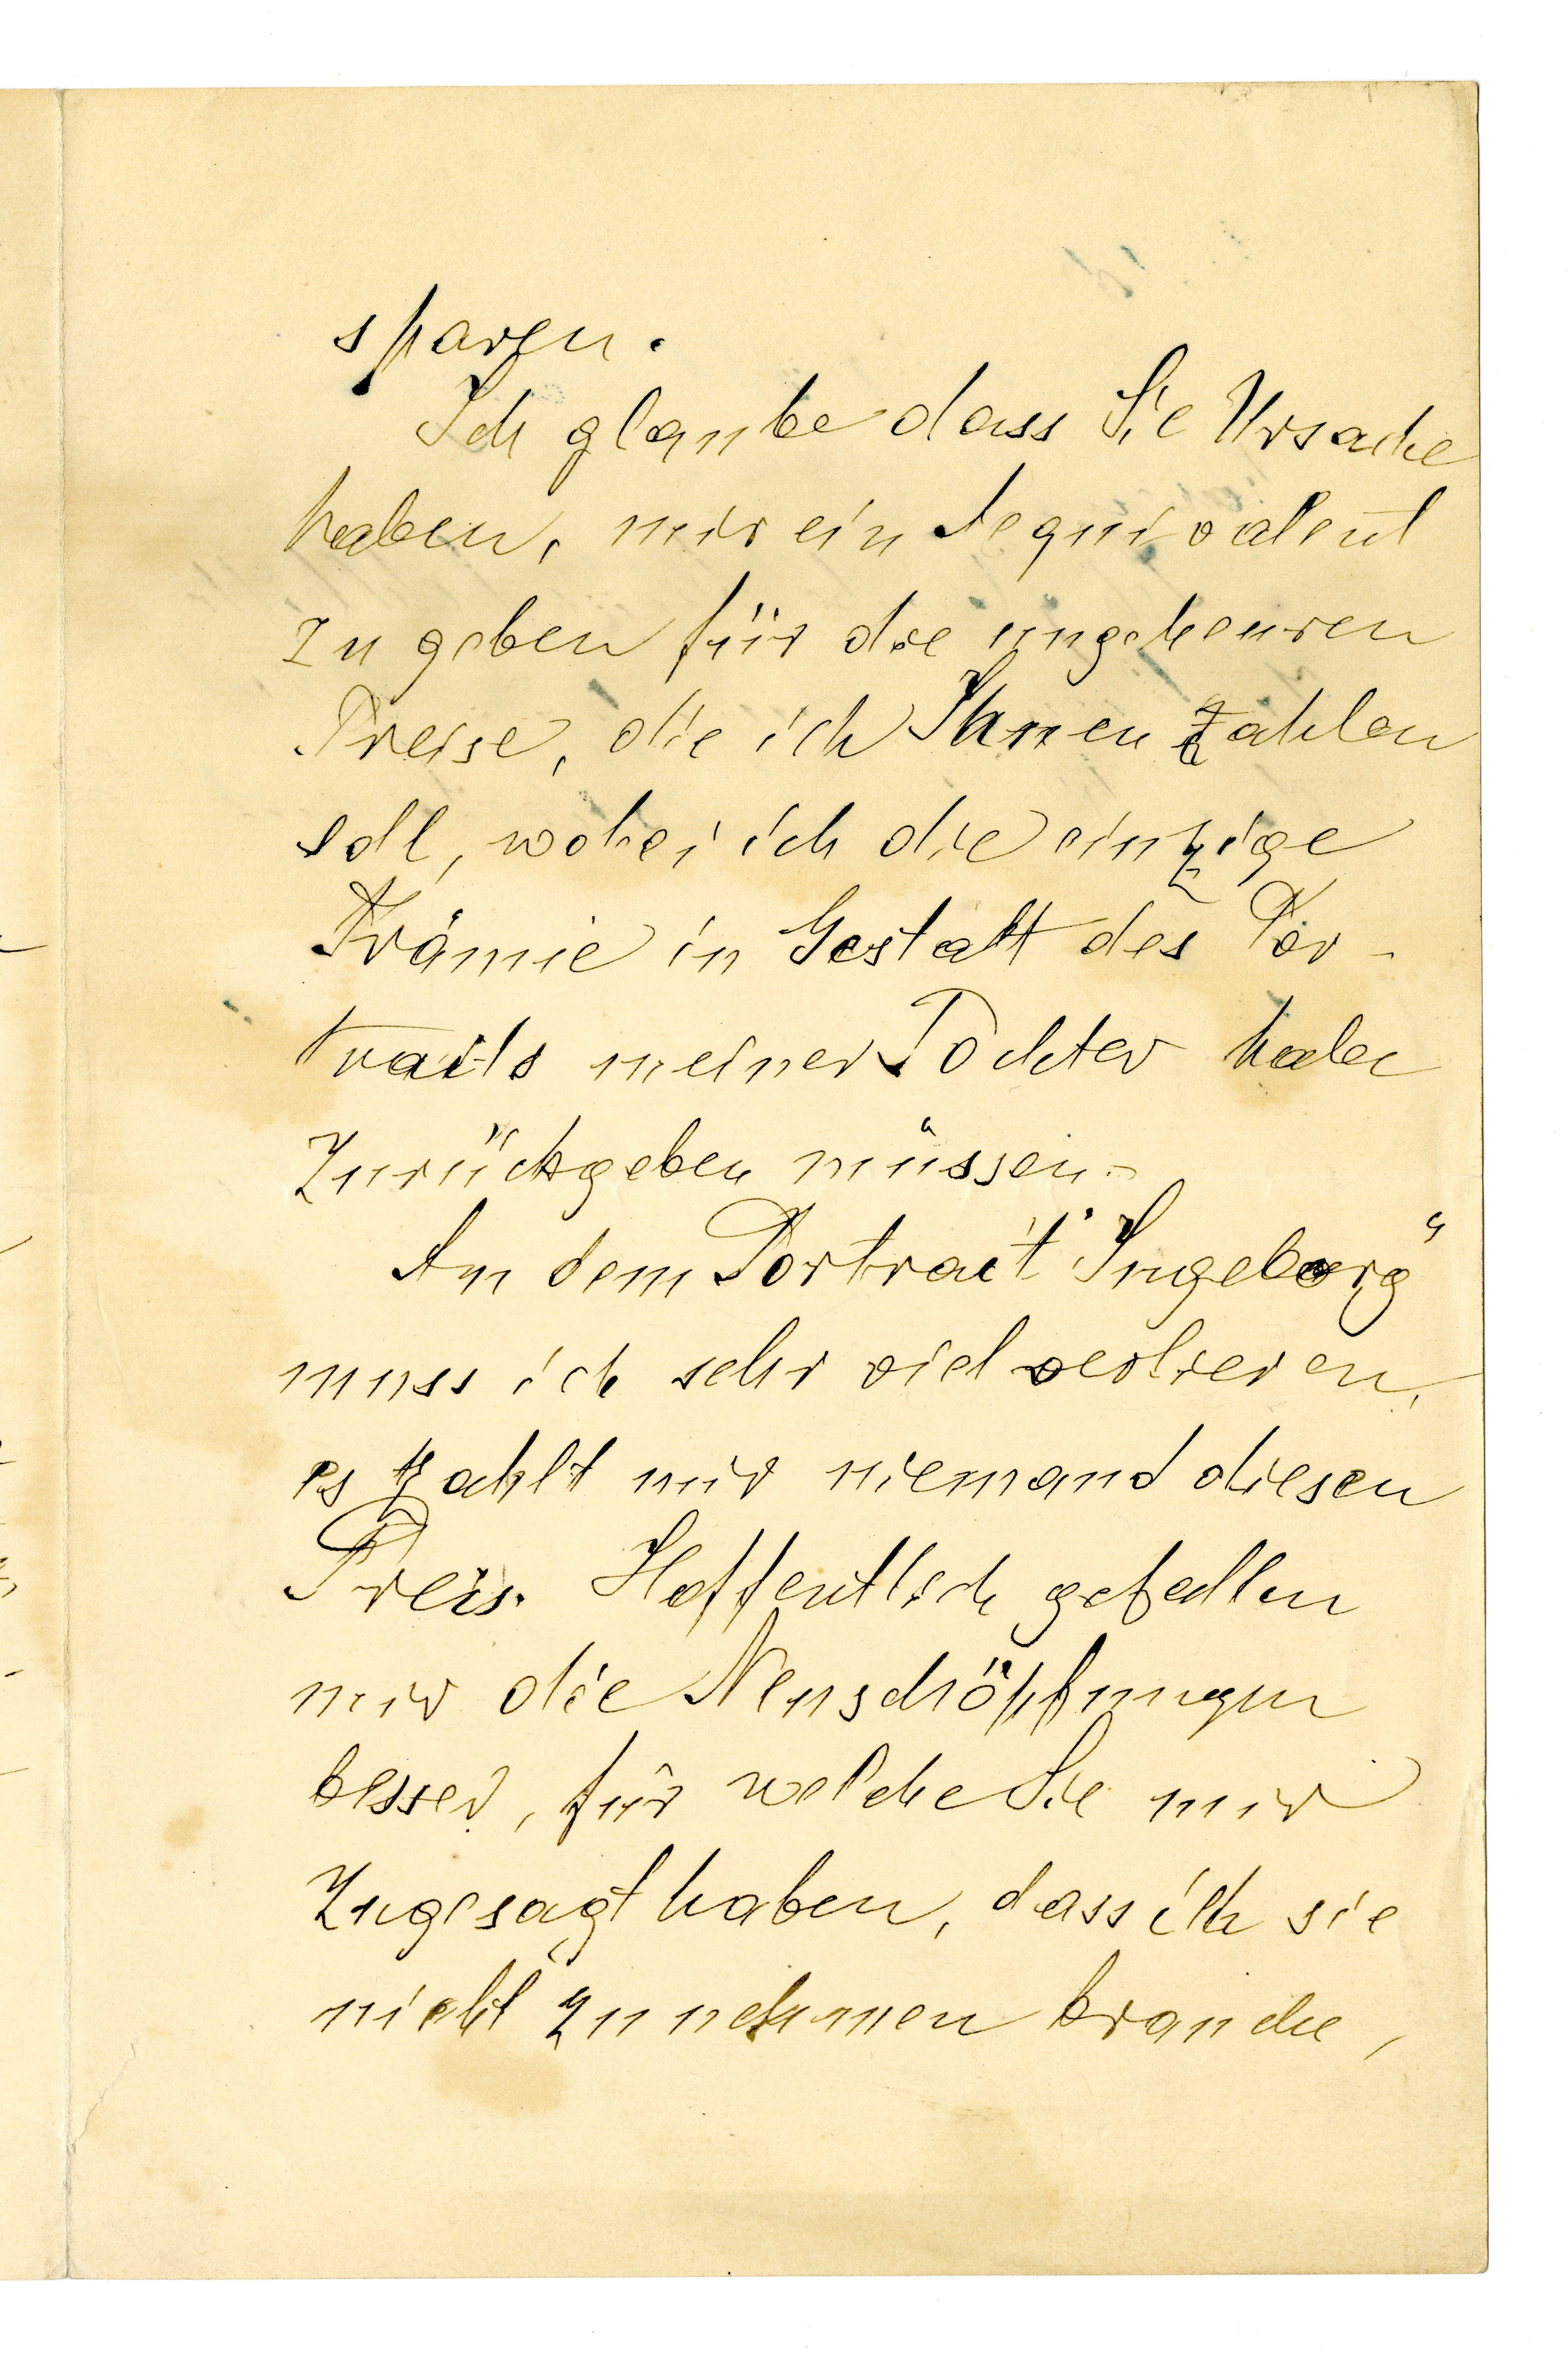 sparen.
Ich glaube dass Sie Ursache
haben, mir ein Aequivalent
zu geben für die ungeheuren
Preise, die ich Ihnen zahlen
soll, wobei ich die einzige
Prämie in Gestalt des Por-
traits meiner Tochter habe
zurückgeben müssen.
An dem Portrait "Ingeborg"
muss ich sehr viel verlieren,
es zahlt mir niemand diesen
Preis. Hoffentlich gefallen
mir die Neuschöpfungen
besser, für welche Sie mir
zugesagt haben, dass ich sie
nicht zu nehmen brauche,